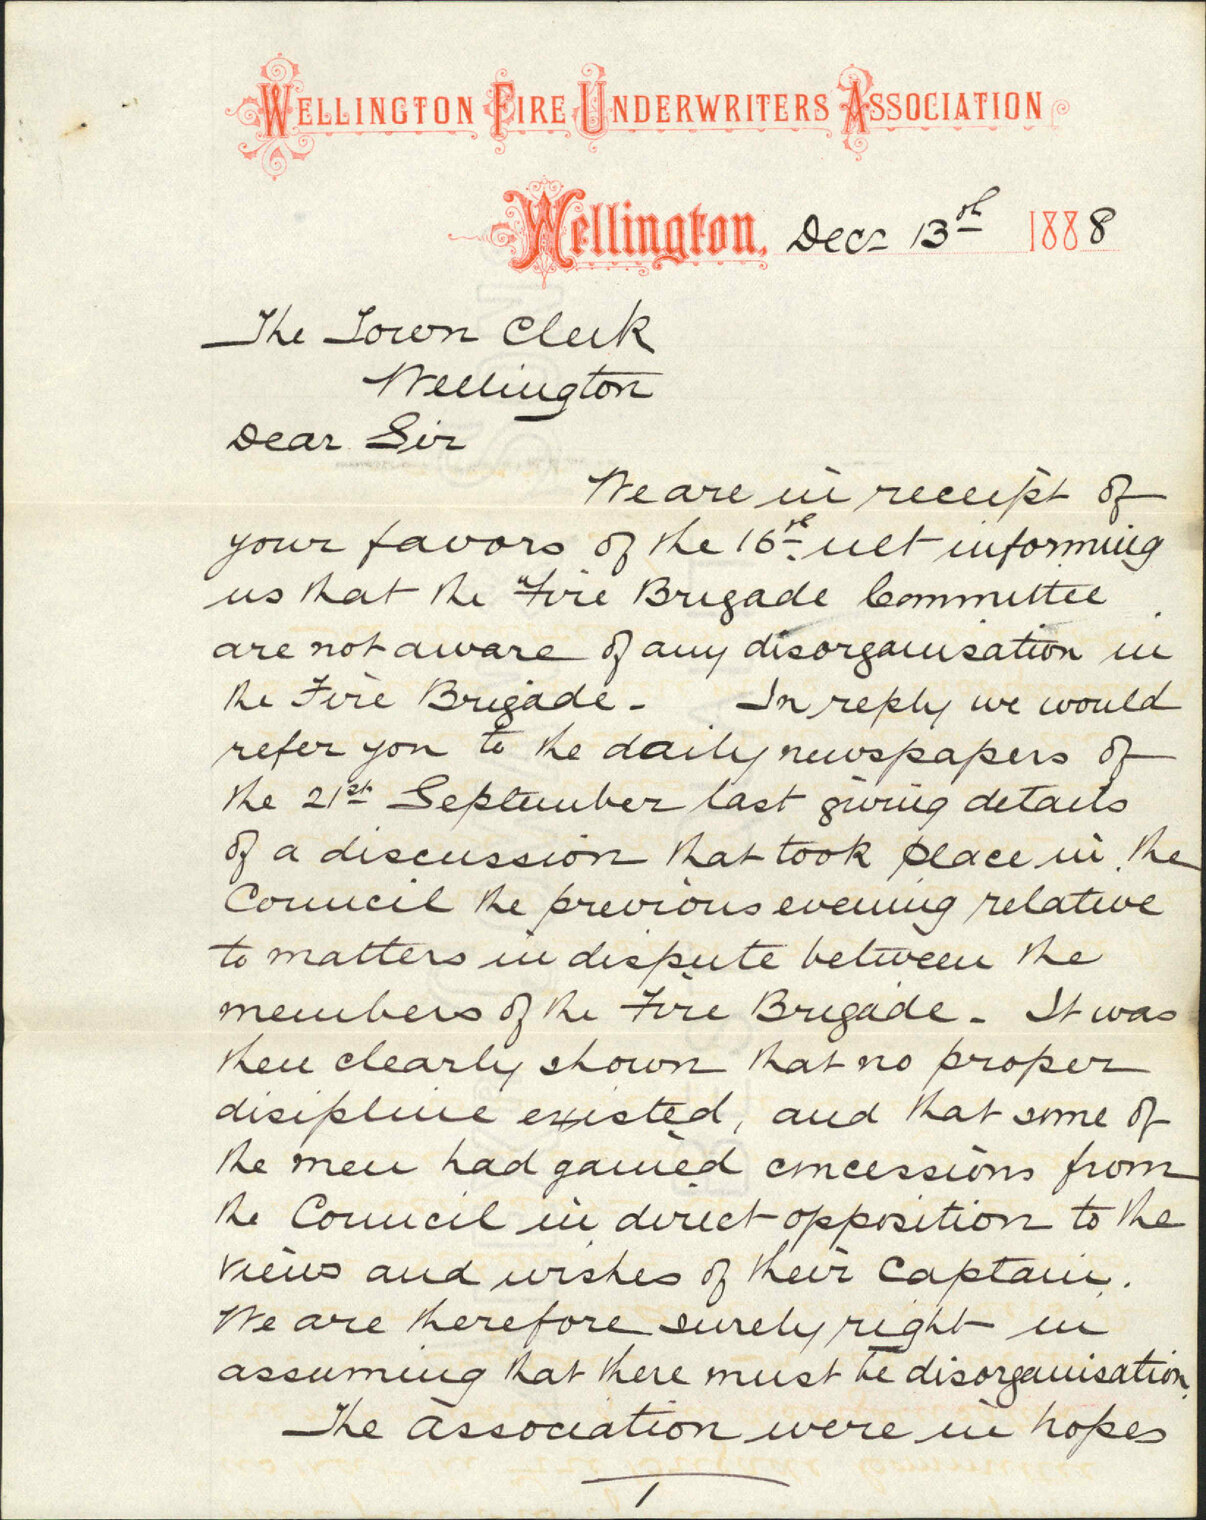 WELLINGTON FIRE UNDERWRITERS ASSOCIATION
Wellington, Dec. 13th 1888
The Town Clerk
Wellington
Dear Sir
We are in receipt of
your favors of the 16th ult informing
us that the "Fire Brigade Committee
are not aware of any disorganisation in
the Fire Brigade - In reply we would
refer you to the daily newspapers of
the 21st September last giving details
of a discussion that took place in the
Council the previous evening relative
to matters in dispute between the
members of the Fire Brigade - It was
then clearly shown that no proper
disipline existed, and that some of
the men had gained concessions from
the Council in direct opposition to the
views and wishes of their Captain.
We are therefore surely right in
assuming that there must be disorganisation.
The Association were in hopes
1